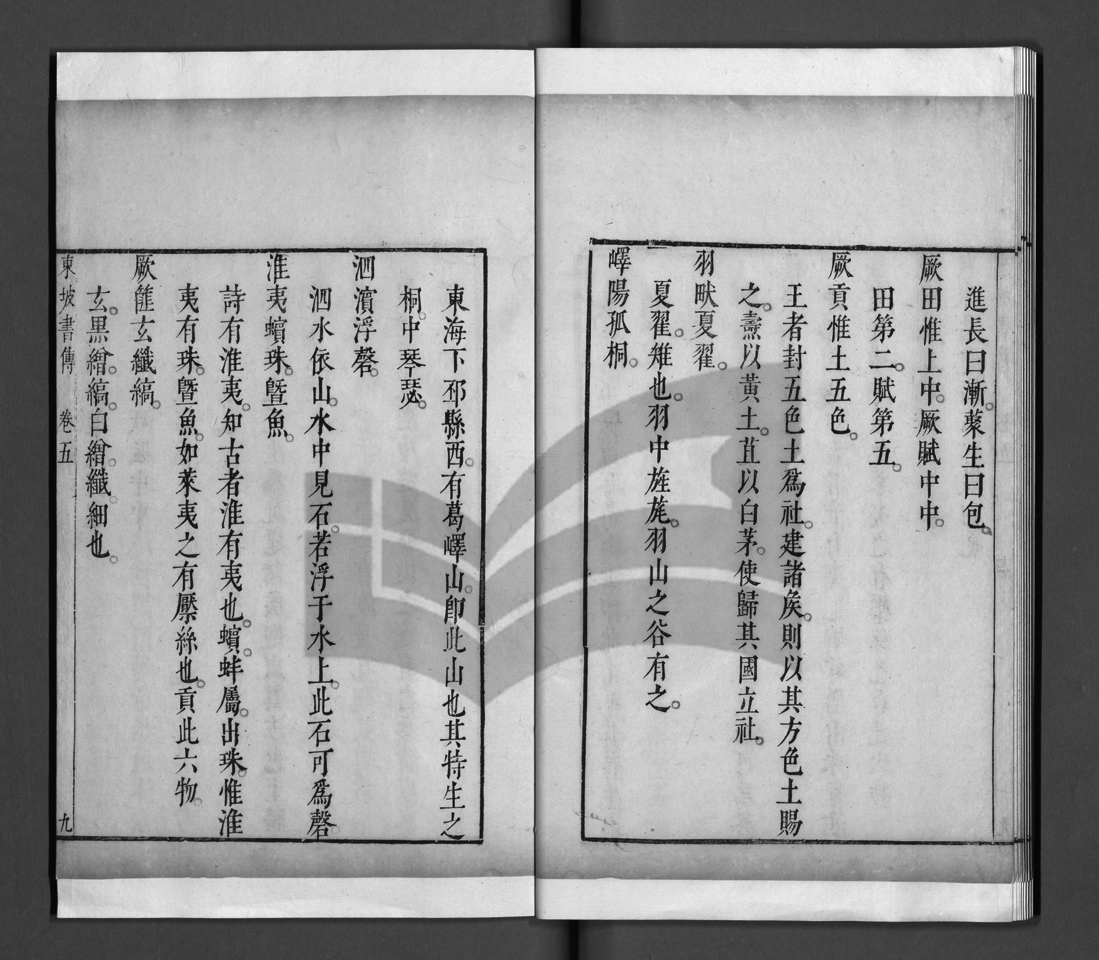 進長曰漸。藂生曰包。
厥田惟上中。厥賦中中。
田第二。賦第五。
厥貢惟土五色。
王者封五色土爲社。建諸矦。則以其方色土賜
之。燾以黃土。苴以白茅。使歸其國立社。
羽畎夏翟。
夏翟。雉也。羽中旌旄。羽山之谷有之。
嶧陽孤桐。
東海下邳縣西。有葛嶧山。卽此山也其特生之
桐。中琴瑟。
泗濵浮磬。
泗水依山。水中見石。若浮于水上。此石可爲磬。
淮夷蠙珠。曁魚。
詩有淮夷。知古者淮有夷也。蠙。蚌屬。出珠。惟淮
夷有珠。曁魚。如萊夷之有檿絲也。貢此六物。
厥篚玄纖縞。
玄。黒繒。縞。白繒。纖。細也。
東坡書傳 卷五 九